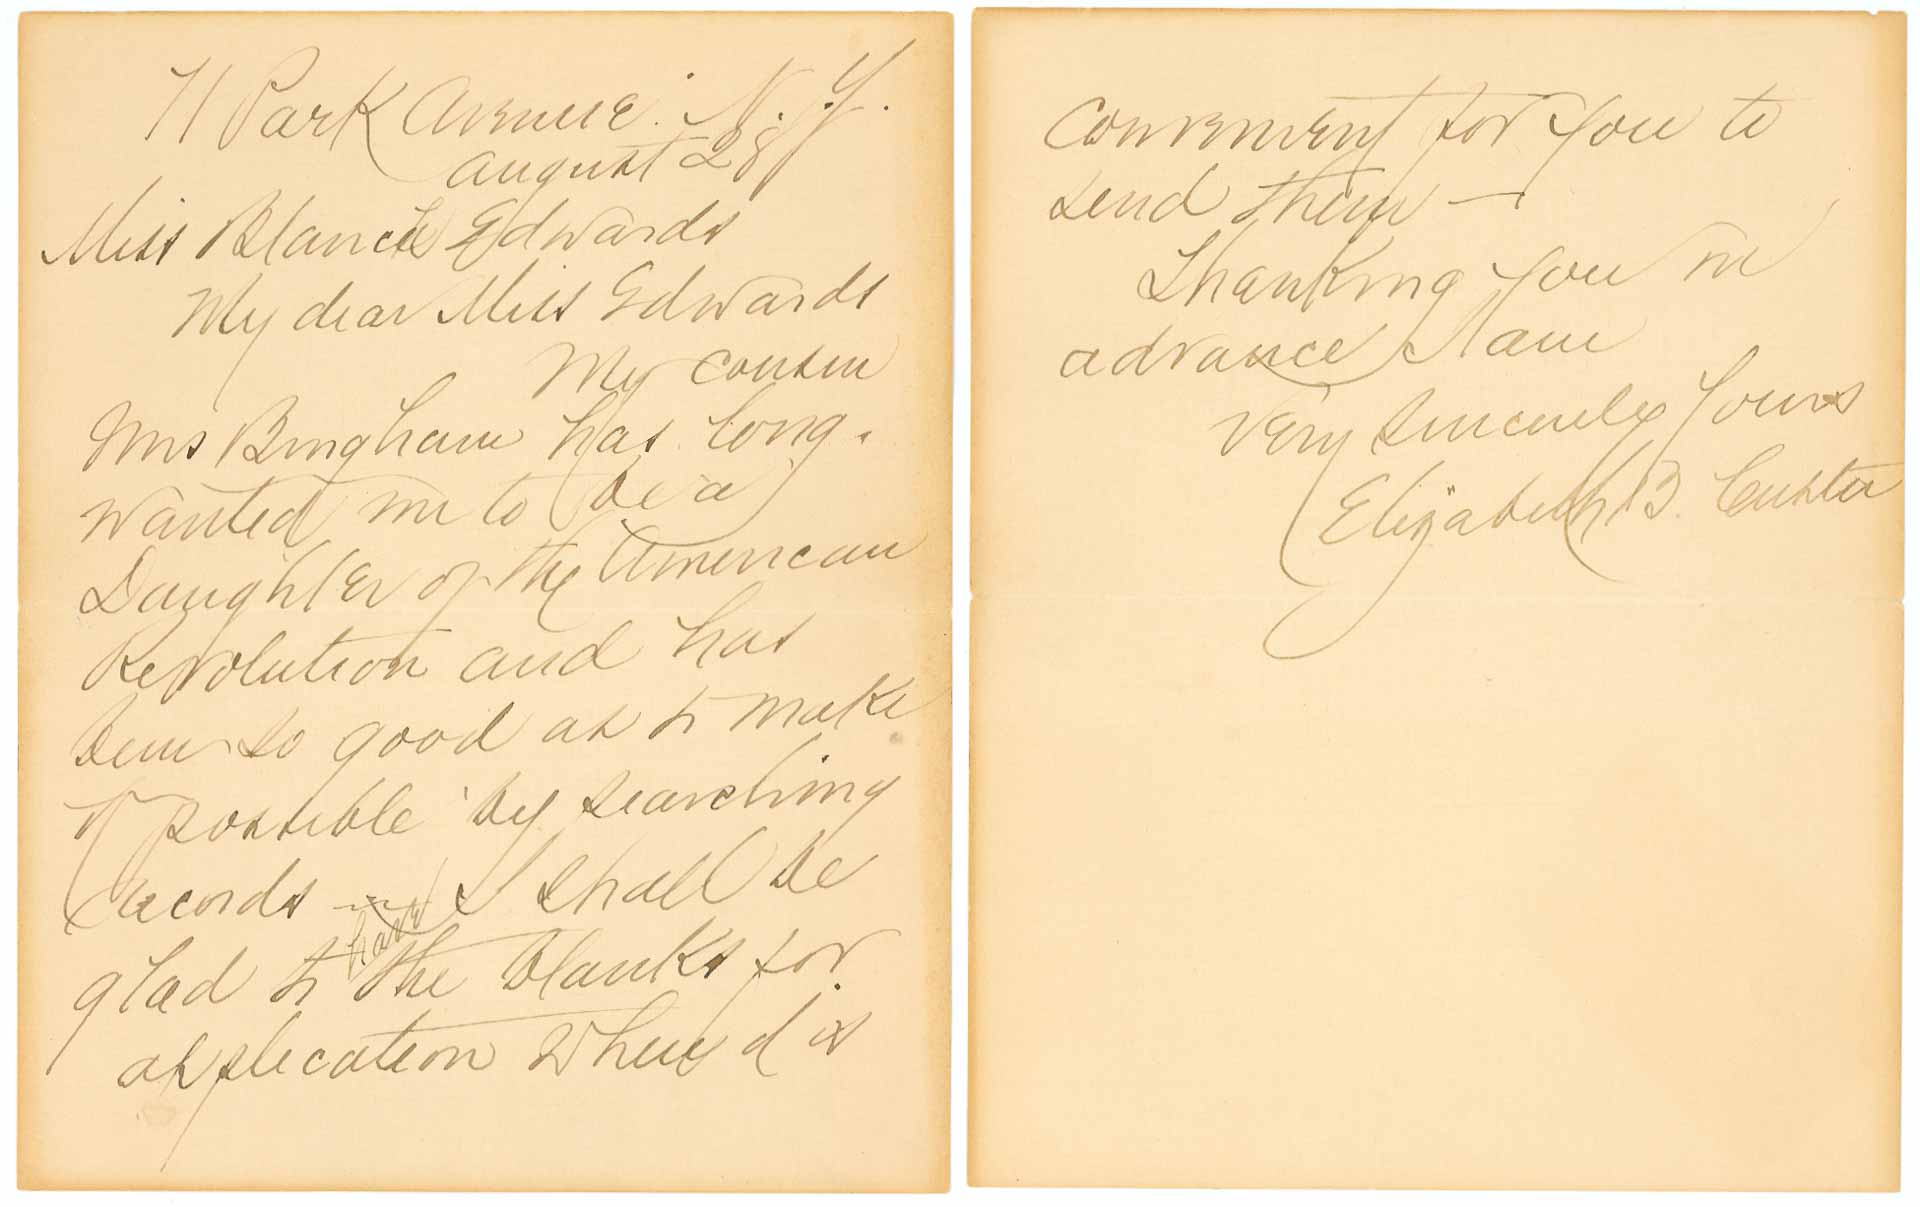 71 Park Avenue. N. Y.
August 28
Miss Blanche Edwards
My dear Miss Edwards
My cousin
Mrs Bingham has long
wanted me to be a
Daughter of the American
Revolution and has
been so good as to make
it possible by searching
records — I shall be
glad to have the blanks for
application when it is
convenient for you to
send them —
Thanking you in
advance I am
Very sincerely yours
Elizabeth B. Custer